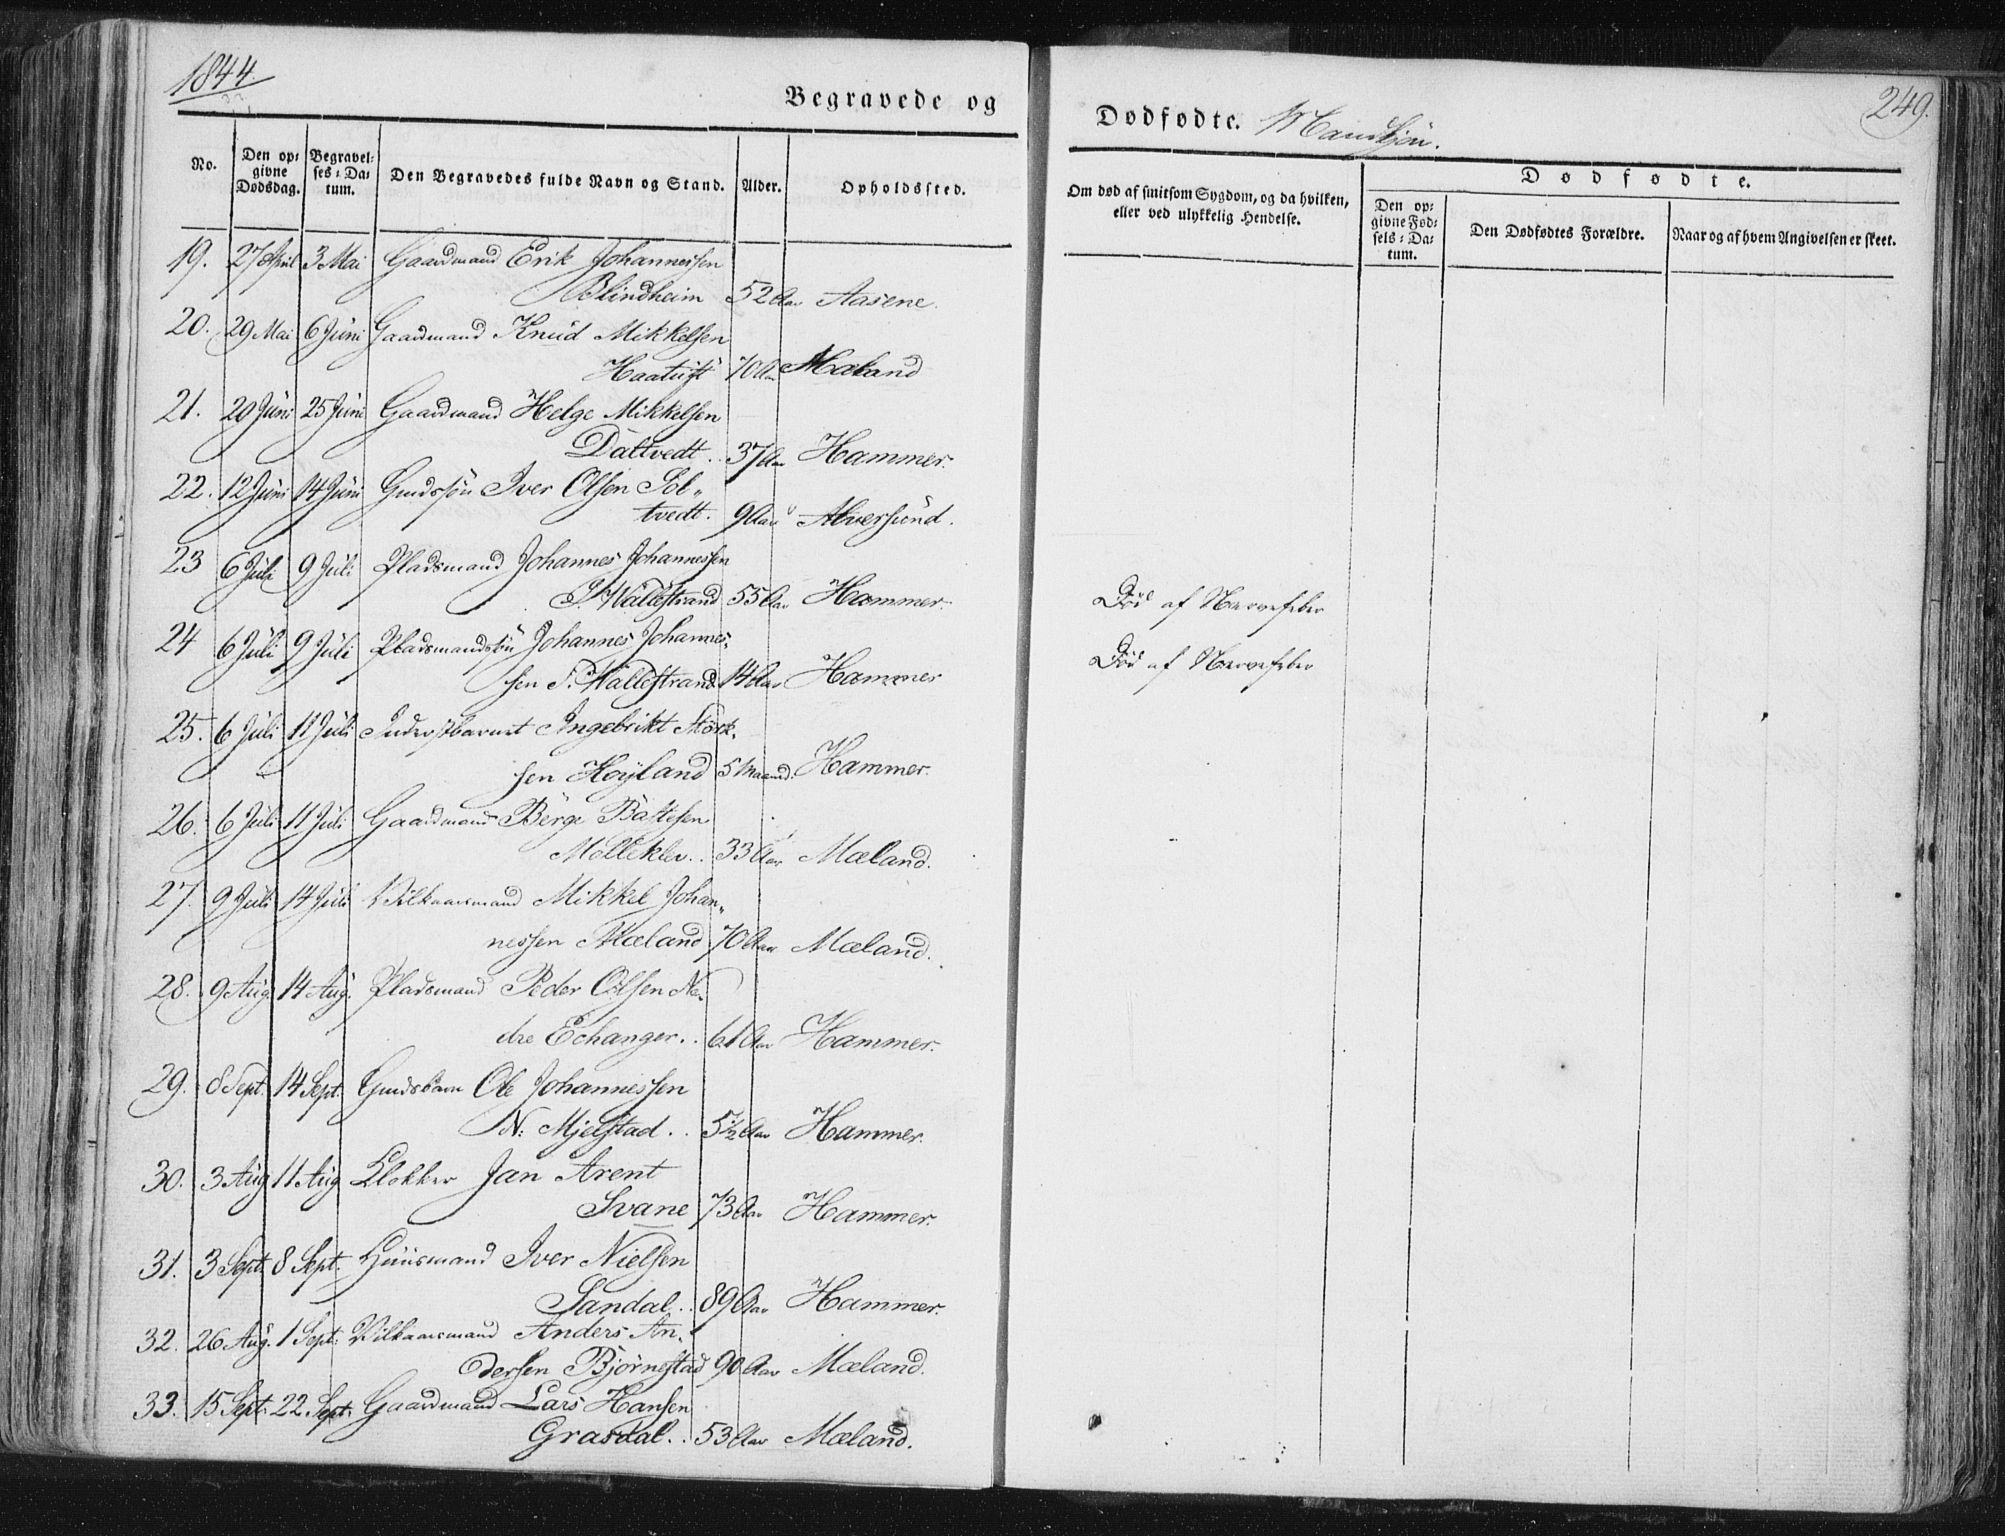 1844
Begravede og
Dødfødte. Mandkjøn.
249.
No.
Den opgivne Dødsdag.
Begravelses-Datum.
Den Begravedes fulde Navn og Stand.
Alder.
Opholdssted.
Om død af smitsom Sygdom, og da hvilken, eller ved ulykkelig Hendelse.
Dødfødte.
Den opgivne Fødsels-Datum.
Den Dødfødtes Forældre.
Naar og af hvem Angivelsen er skeet.
19. 27 April 3 Mai Gaardmand Erik Johannessen
Blindheim 52 Aar Aasene.
20. 29 Mai 6 Juni Gaardmand Knud Mikkelsen
70 Aar Mæland
21. 20 Juni 25 Juni Gaardmand Helge Mikkelsen
Daltvedt. 37 Aar Hammer.
22. 12 Juni 14 Juni Gmdssøn Iver Olsen Sol-
tvedt. 9 Aar Alversund.
23 6 Juli 9 Juli Pladsmand Johannes Johannessen
Wallestrand 55 Aar Hammer. Død af Nervefeber
24 6 Juli 9 Juli Pladsmandssøn Johannes Johannes-
sen Wallestrand 14 Aar Hammer Død af Nervefeber
25. 6 Juli 11 Juli Inderstbarnet Ingebrikt Størk-
sen Høyland 5 Maaned. Hammer.
26. 6 Juli 11 Juli Gaardmand Børge Bastesen
Molleklev.. 33 Aar Mæland.
27. 9 Juli 14 Juli Vilkaarsmand Mikkel Johan-
nessen Mæland 70 Aar Mæland.
28. 9 Aug. 14 Aug. Pladsmand Peder Olsen Ne-
dre Echanger.. 61 Aar Hammer.
29. 8 Sept. 14 Sept. Gmdsbarn Ole Johannessen
N: Mjelstad.. 5½ Aar Hammer.
30. 3 Aug 11 Aug Klokker Jan Arent
Svane 73 Aar Hammer.
31. 3 Sept. 8 Sept. Huusmand Iver Nielsen
Sandal.. 89 Aar Hammer.
32. 26 Aug. 1 Sept: Vilkaarsmand Anders An-
dersen Bjørnestad 90 Aar Mæland.
33. 15 Sept: 22 Sept: Gaardmand Lars Hansen
Grasdal.. 53 Aar Mæland.